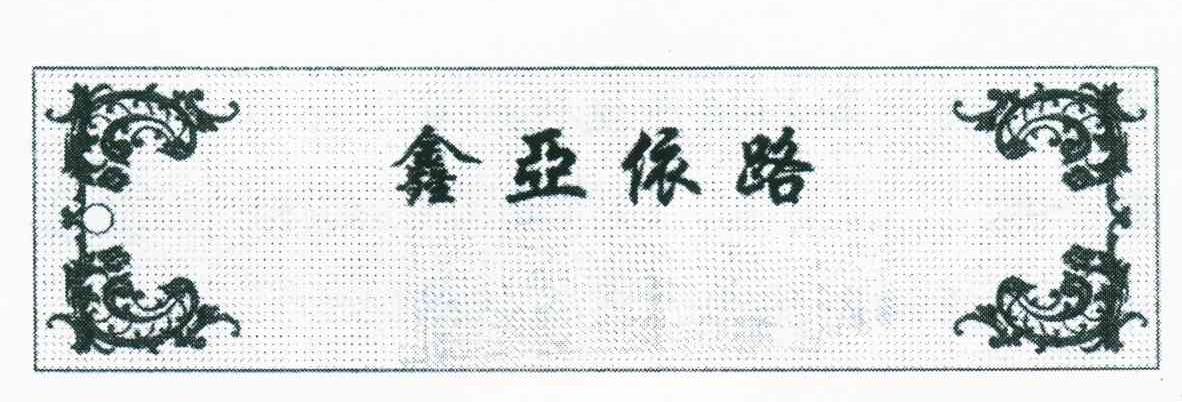 鑫亞依路